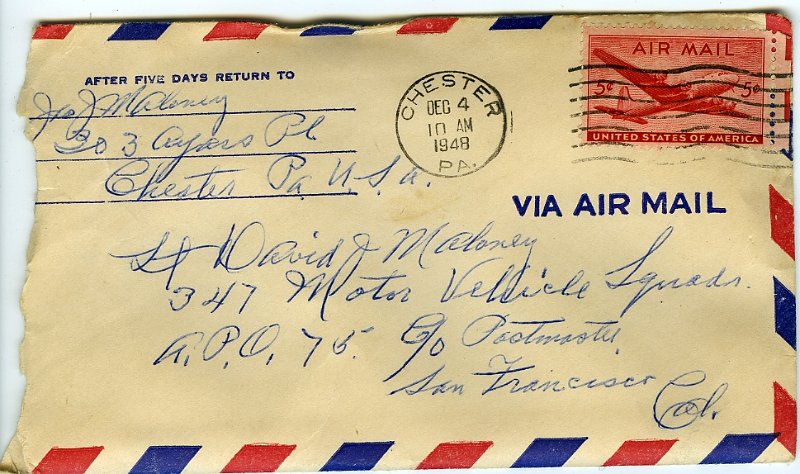 AFTER FIVE DAYS RETURN TO
Jos J Maloney
303 Ayars Pl
Chester Pa. U.S.A.
CHESTER
DEC 4
10 AM
1948
PA.
AIR MAIL
5¢ 5¢
UNITED STATES OF AMERICA
VIA AIR MAIL
Lt David J Maloney
347 Motor Vehicle Squadr.
A.P.O. 75. c/o Postmaster,
San Francisco Cal.